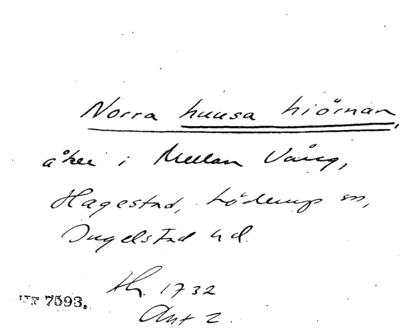 Norra huusa hiörnan,
åker i Mellan Vång,
Hagestad, Löderup sn,
Ingelstad hd.
1732
7593.
Akt 2